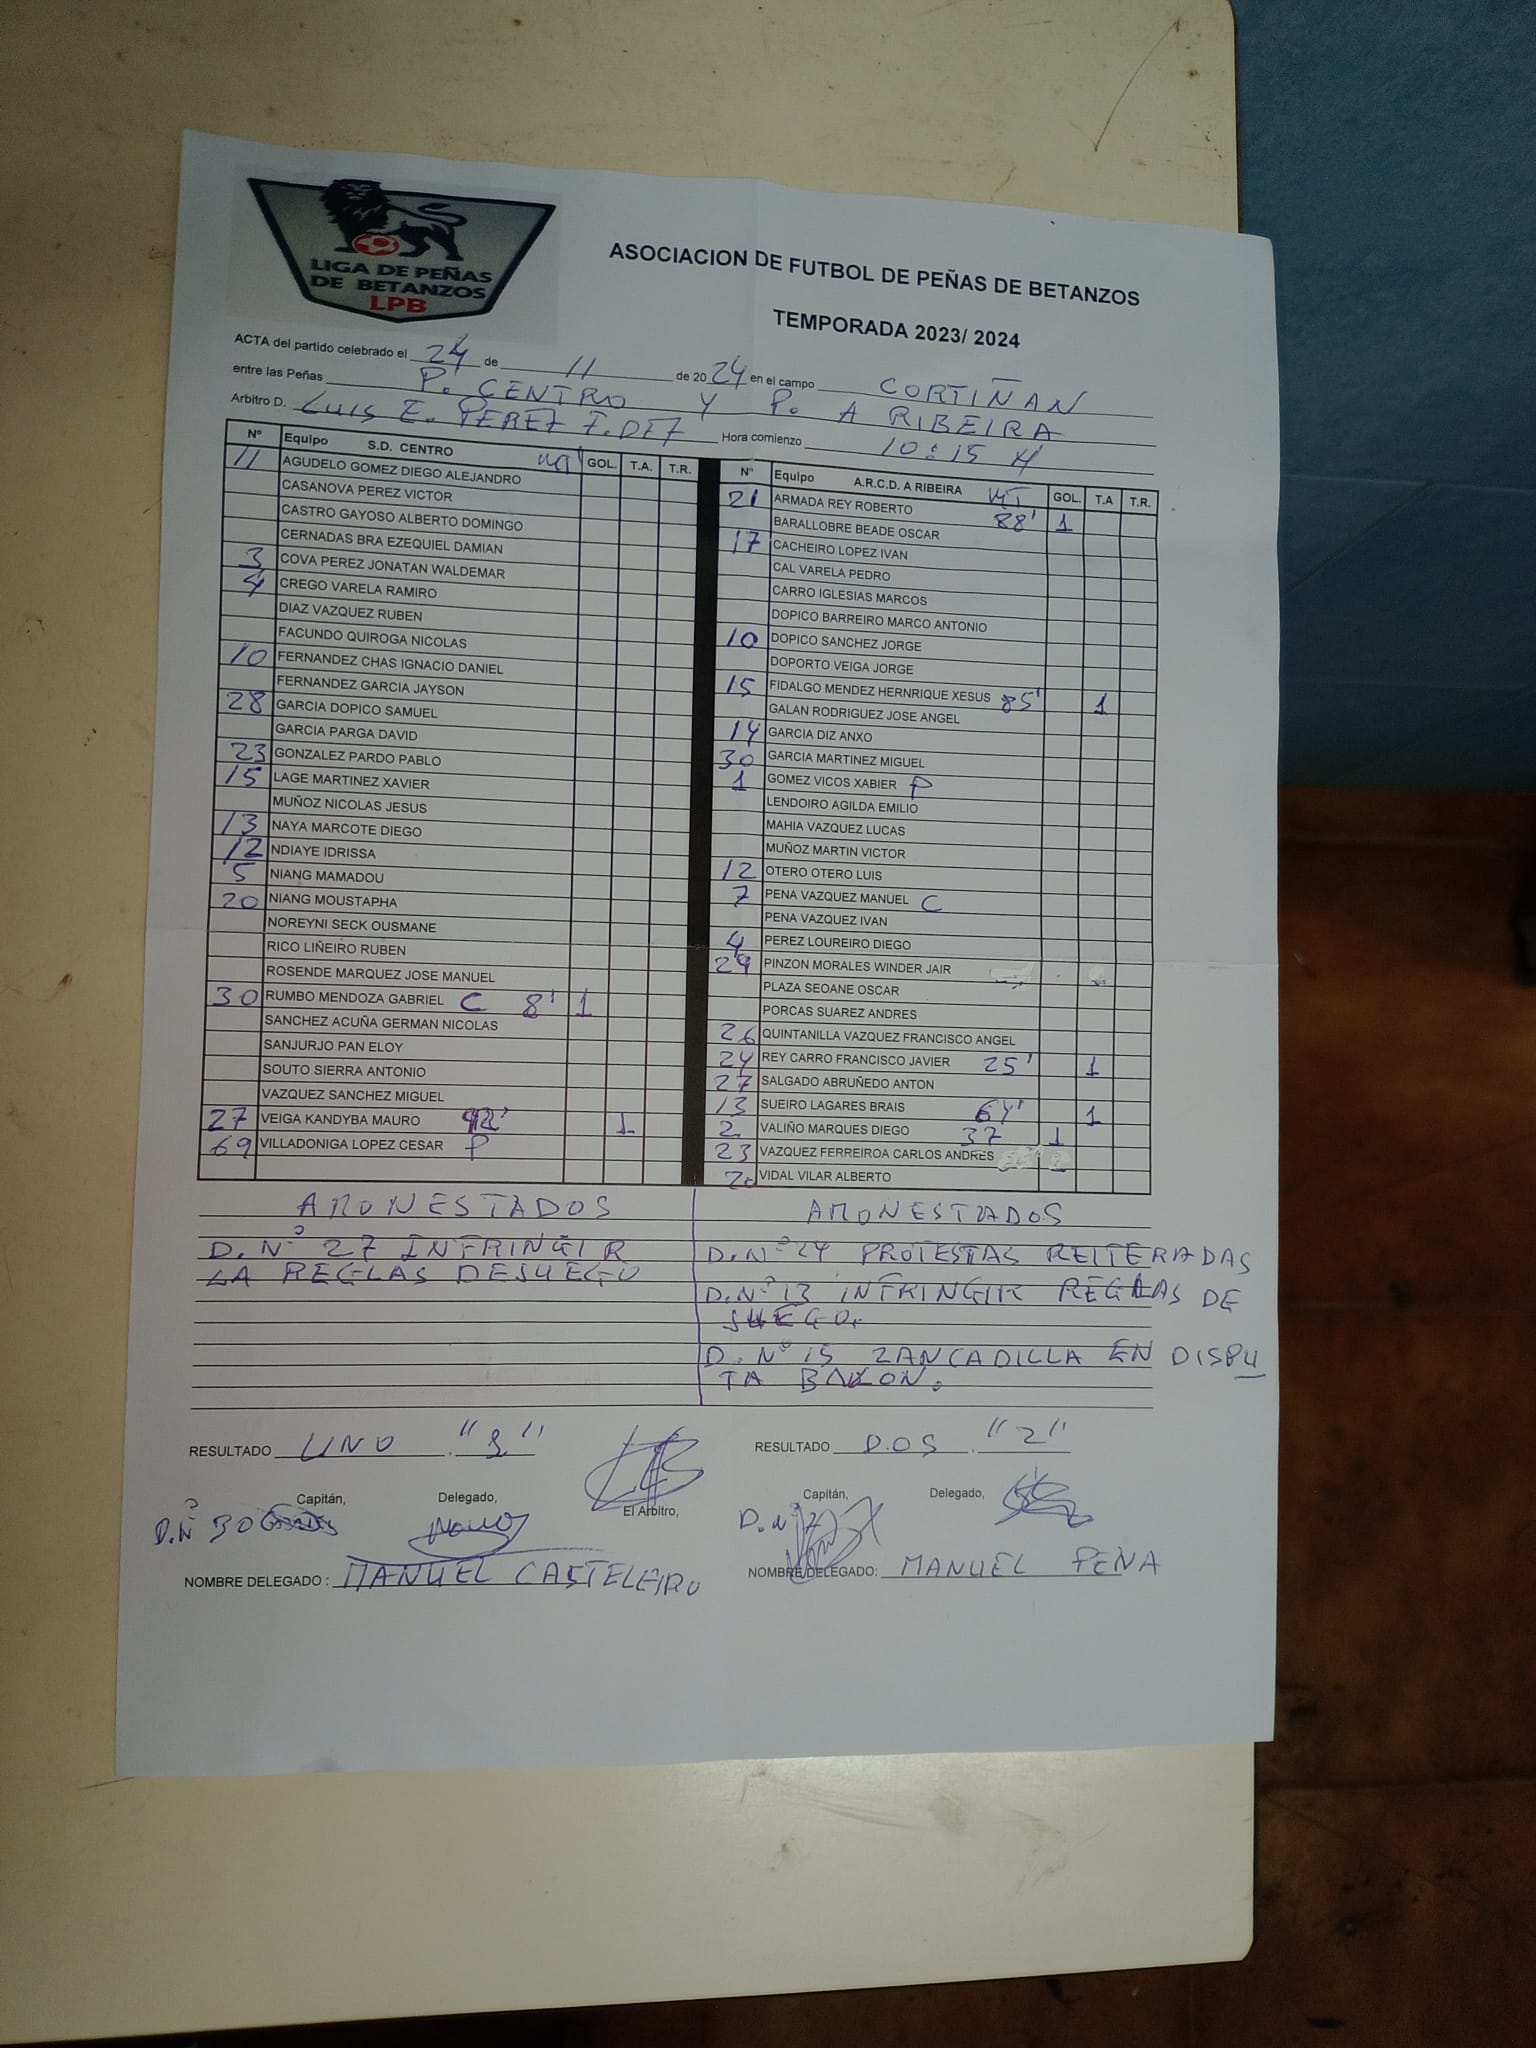 LIGA DE PEÑAS
DE BETANZOS
LPB
ASOCIACION DE FUTBOL DE PEÑAS DE BETANZOS
TEMPORADA 2023/ 2024
ACTA del partido celebrado el 24 de 11 de 2024 en el campo CORTIÑAN
entre las Peñas P. CENTRO Y P. A RIBEIRA
Arbitro D. LUIS E. PEREZ Hora comienzo 10:15 H
Nº Equipo S.D. CENTRO GOL. T.A. T.R.
11 AGUDELO GOMEZ DIEGO ALEJANDRO
CASANOVA PEREZ VICTOR
CASTRO GAYOSO ALBERTO DOMINGO
CERNADAS BRA EZEQUIEL DAMIAN
3 COVA PEREZ JONATAN WALDEMAR
4 CREGO VARELA RAMIRO
DIAZ VAZQUEZ RUBEN
FACUNDO QUIROGA NICOLAS
10 FERNANDEZ CHAS IGNACIO DANIEL
FERNANDEZ GARCIA JAYSON
28 GARCIA DOPICO SAMUEL
GARCIA PARGA DAVID
23 GONZALEZ PARDO PABLO
15 LAGE MARTINEZ XAVIER
MUÑOZ NICOLAS JESUS
13 NAYA MARCOTE DIEGO
12 NDIAYE IDRISSA
5 NIANG MAMADOU
20 NIANG MOUSTAPHA
NOREYNI SECK OUSMANE
RICO LIÑEIRO RUBEN
ROSENDE MARQUEZ JOSE MANUEL
30 RUMBO MENDOZA GABRIEL C 8' 1
SANCHEZ ACUÑA GERMAN NICOLAS
SANJURJO PAN ELOY
SOUTO SIERRA ANTONIO
VAZQUEZ SANCHEZ MIGUEL
27 VEIGA KANDYBA MAURO 1
69 VILLADONIGA LOPEZ CESAR P
Nº Equipo A.R.C.D. A RIBEIRA GOL. T.A T.R.
21 ARMADA REY ROBERTO
BARALLOBRE BEADE OSCAR 88' 1
17 CACHEIRO LOPEZ IVAN
CAL VARELA PEDRO
CARRO IGLESIAS MARCOS
DOPICO BARREIRO MARCO ANTONIO
10 DOPICO SANCHEZ JORGE
DOPORTO VEIGA JORGE
15 FIDALGO MENDEZ HERNRIQUE XESUS 85' 1
GALAN RODRIGUEZ JOSE ANGEL
14 GARCIA DIZ ANXO
30 GARCIA MARTINEZ MIGUEL
1 GOMEZ VICOS XABIER P
LENDOIRO AGILDA EMILIO
MAHIA VAZQUEZ LUCAS
MUÑOZ MARTIN VICTOR
12 OTERO OTERO LUIS
7 PENA VAZQUEZ MANUEL C
PENA VAZQUEZ IVAN
4 PEREZ LOUREIRO DIEGO
29 PINZON MORALES WINDER JAIR
PLAZA SEOANE OSCAR
PORCAS SUAREZ ANDRES
26 QUINTANILLA VAZQUEZ FRANCISCO ANGEL
24 REY CARRO FRANCISCO JAVIER 25' 1
27 SALGADO ABRUÑEDO ANTON
13 SUEIRO LAGARES BRAIS 64' 1
2 VALIÑO MARQUES DIEGO 37 1
23 VAZQUEZ FERREIROA CARLOS ANDRES
20 VIDAL VILAR ALBERTO
AMONESTADOS
D. Nº 27 INFRINGIR
LA REGLAS DE JUEGO
AMONESTADOS
D. Nº 24 PROTESTAS REITERADAS
D. Nº 13 INFRINGIR REGLAS DE
JUEGO.
D. Nº 15 ZANCADILLA EN DISPU
TA BALON.
RESULTADO UNO "1"
RESULTADO DOS "2"
Capitán, Delegado, El Arbitro, Capitán, Delegado,
D. Nº 30 D. Nº 7
NOMBRE DELEGADO : MANUEL CASTELEIRO
NOMBRE DELEGADO: MANUEL PENA